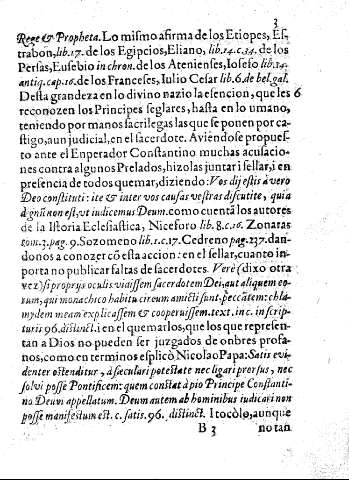 3
Rege & Propheta. Lo mismo afirma de los Etiopes, Es-
trabon, lib.17. de los Egipcios, Eliano, lib.14.c.34. de los
Persas, Eusebio in chron. de los Atenienses, Iosefo lib.14.
antiq.cap.16. de los Franceses, Iulio Cesar lib.6.de bel.gal.
Desta grandeza en lo divino nazio la esencion, que les
reconozen los Principes seglares, hasta en lo umano,
teniendo por manos sacrilegas las que se ponen por cas-
tigo, aun judicial, en el sacerdote. Aviéndose propues-
to ante el Enperador Constantino muchas acusacio-
nes contra algunos Prelados, hizolas juntar i sellar, i en
presencia de todos quemar, diziendo: Vos dij estis à vero
Deo constituti: ite & inter vos causas vestras discutite, quia
dignũ non est, vt iudicemus Deum. como cuentã los autores
de la Istoria Eclesiastica, Niceforo lib. 8.c.16. Zonaras
tom.3.pag.9. Sozomeno lib.1.c.17. Cedreno pag.237. dan-
donos a conozer cõ esta accion: en el sellar, cuanto in-
porta no publicar faltas de sacerdotes. Verè (dixo otra
vez) si proprijs oculis vidissem sacerdotem Dei, aut aliquem eo-
rum, qui monachico habitu circum amicti sunt, peccãtem: chla-
mydem meam explicassem & cooperuissem. text. inc. in scrip-
turis 96. distinct. i en el quemarlos, que los que represen-
tan a Dios no pueden ser juzgados de onbres profa-
nos, como en terminos esplicò Nicolao Papa: Satis evi-
denter ostenditur, à sæculari potestate nec ligari prorsus, nec
solvi posse Pontificem: quem constat à pio Principe Constanti-
no Deum appellatum. Deum autem ab hominibus iudicari non
posse manifestum est. c. satis. 96. distinct. I tocòlo, aunque
B 3 notan
6